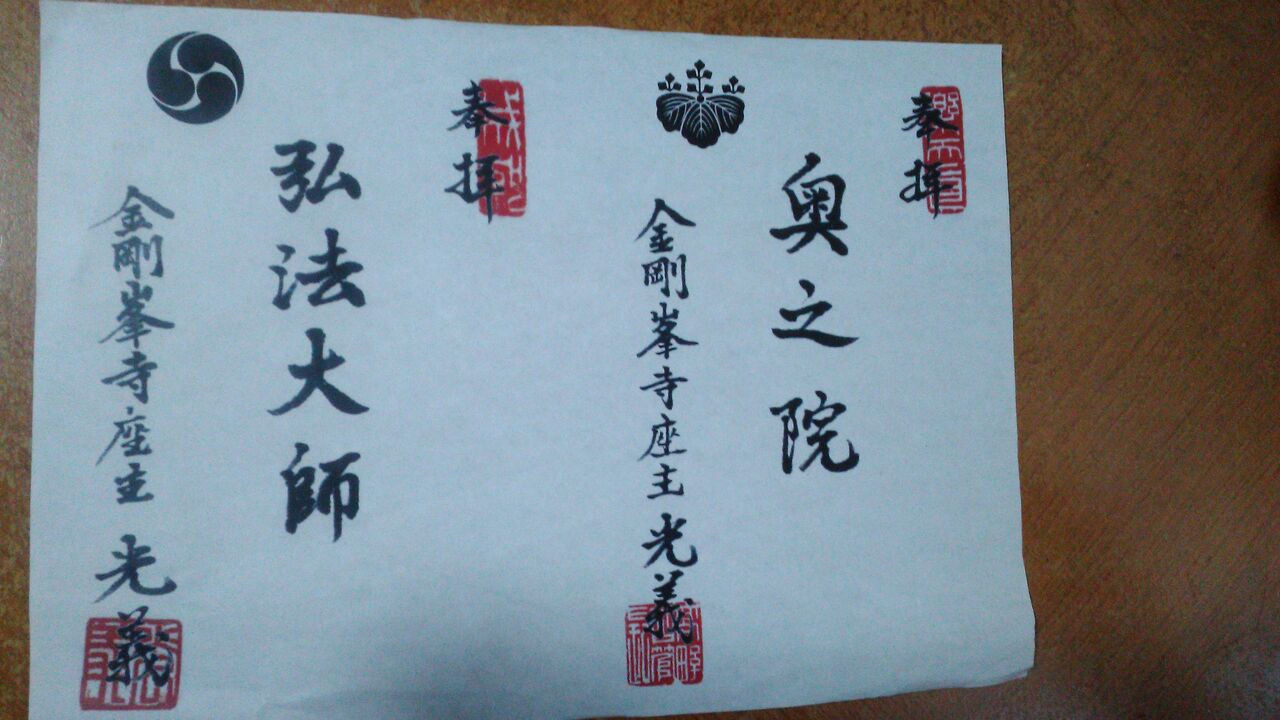 奉拝
奥之院
金剛峯寺座主 光義
奉拝
弘法大師
金剛峯寺座主 光義